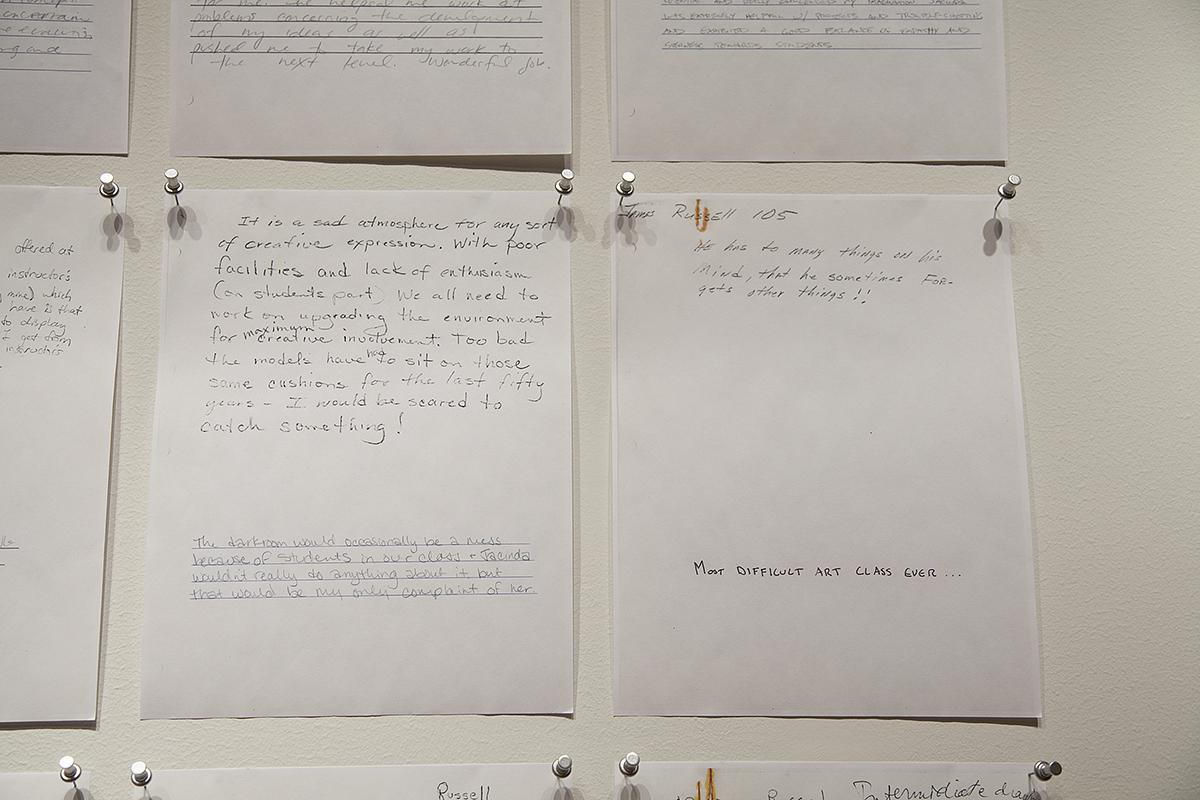 for me. He helped me work at
problems concerning the development
of my ideas as well as
pushed me to take my work to
the next level. Wonderful job.
was extremely helpful w/ projects and trouble-shooting
and exhibited a good balance of empathy and
towards students.
offered at
instructor's
mine) which
have is that
to display
I get from
instructors
It is a sad atmosphere for any sort
of creative expression. With poor
facilities and lack of enthusiasm
(on students part) We all need to
work on upgrading the environment
for maximum creative involvement. Too bad
the models have had to sit on those
same cushions for the last fifty
years - I would be scared to
catch something!
The darkroom would occasionally be a mess
because of students in our class + Jacinda
wouldn't really do anything about it but
that would be my only complaint of her.
James Russell 105
He has to many things on his
mind, that he sometimes for-
gets other things!!
Most difficult art class ever...
Russell
Russel Intermidiate